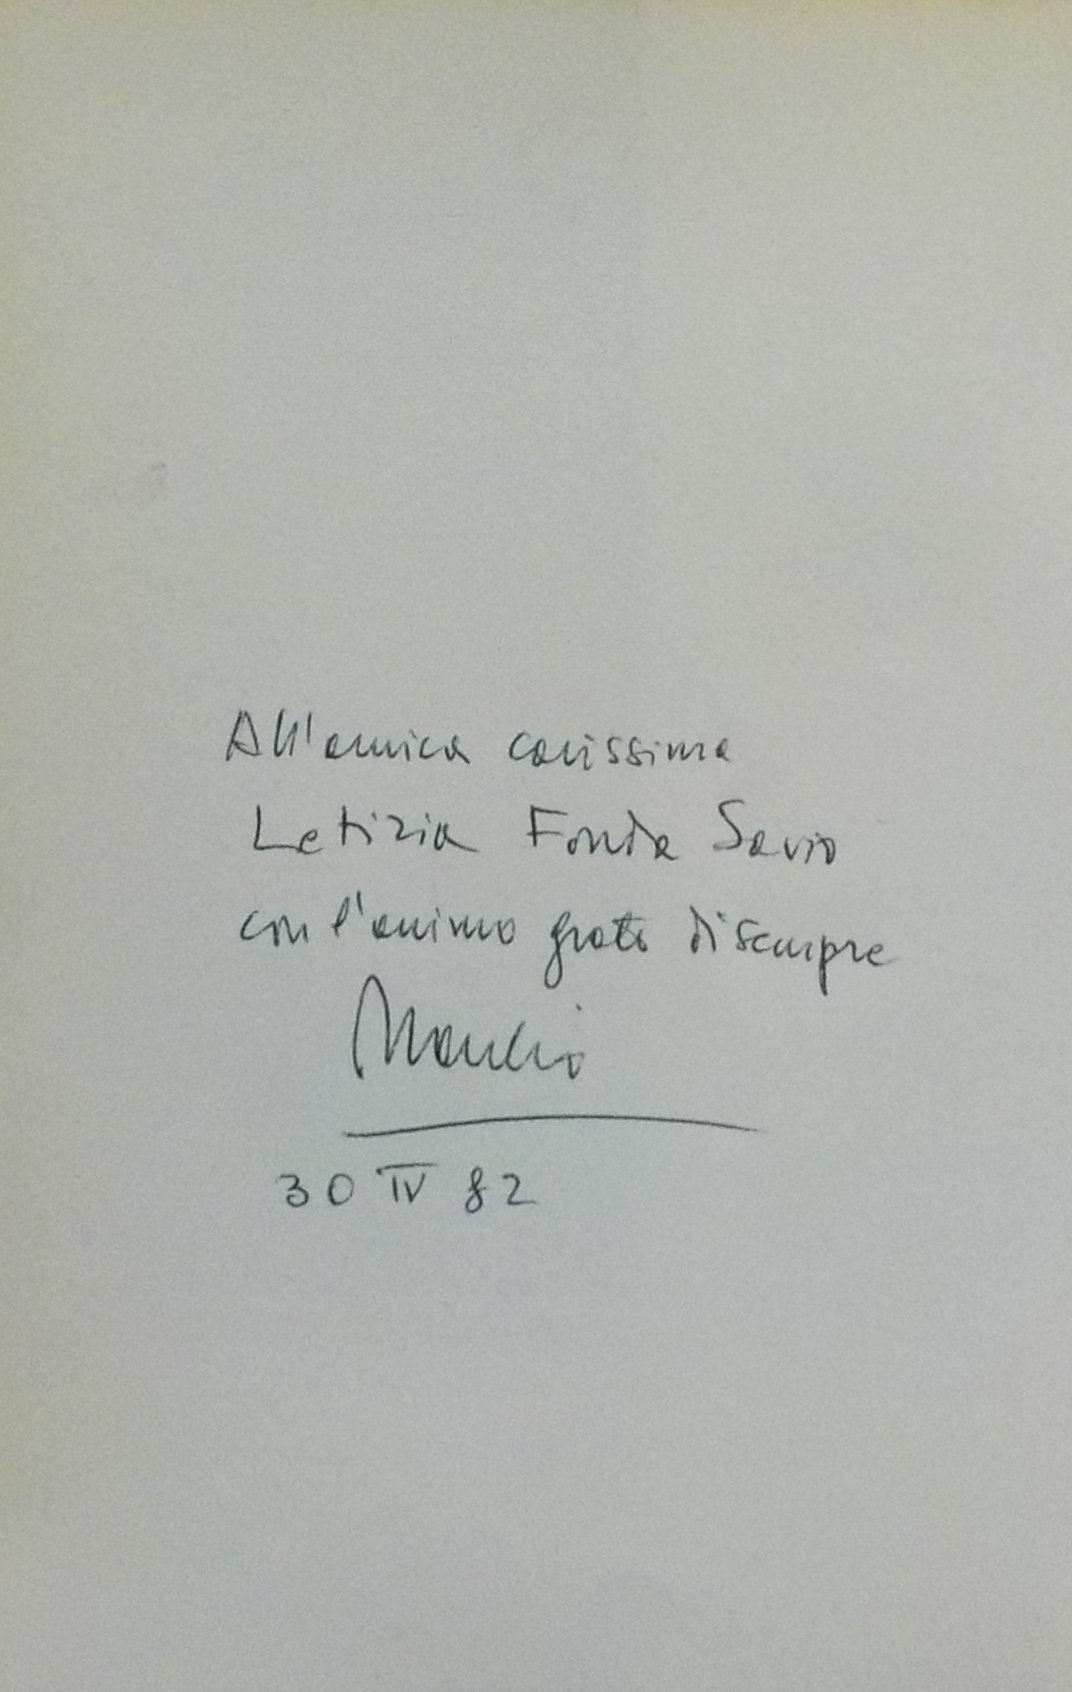 All'amica carissima
Letizia Fonda Savio
con l'animo grato di sempre
Manlio
30 IV 82